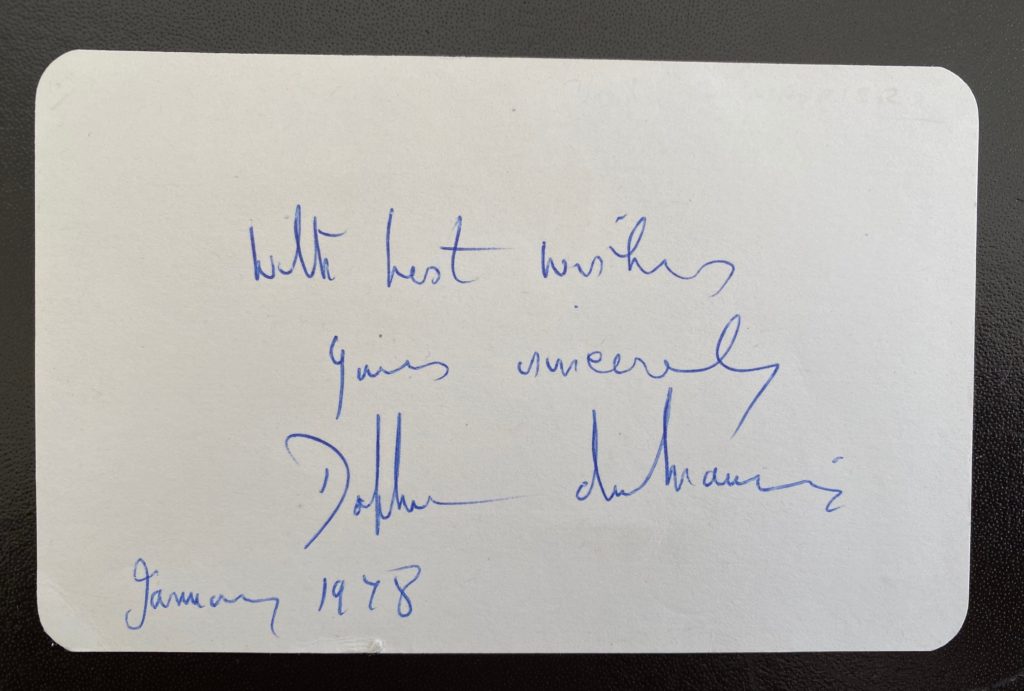 With best wishes
yours sincerely
Daphne du Maurier
January 1978